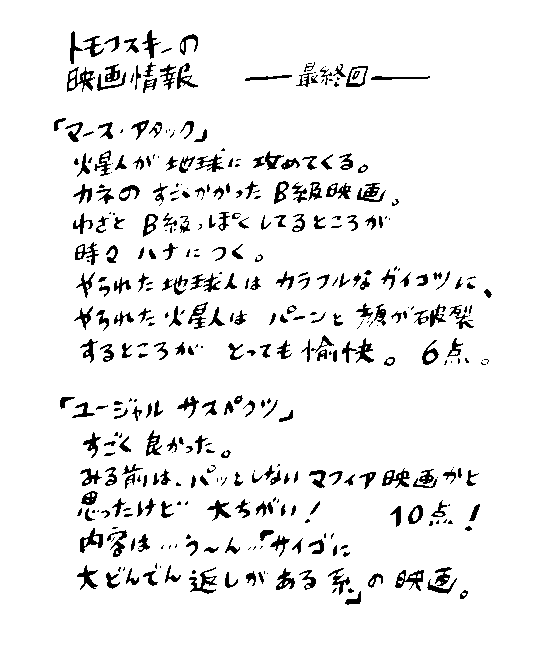 トモフスキーの
映画情報 ――最終回――
「マース・アタック」
火星人が地球に攻めてくる。
カネのすごいかかったB級映画。
わざとB級っぽくしてるところが
時々ハナにつく。
やられた地球人はカラフルなガイコツに、
やられた火星人はパーンと顔が破裂
するところがとっても愉快。6点。
「ユージャルサスペクツ」
すごく良かった。
みる前は、パッとしないマフィア映画かと
思ったけど大ちがい! 10点!
内容は…う〜ん…「サイゴに
大どんでん返しがある系」の映画。